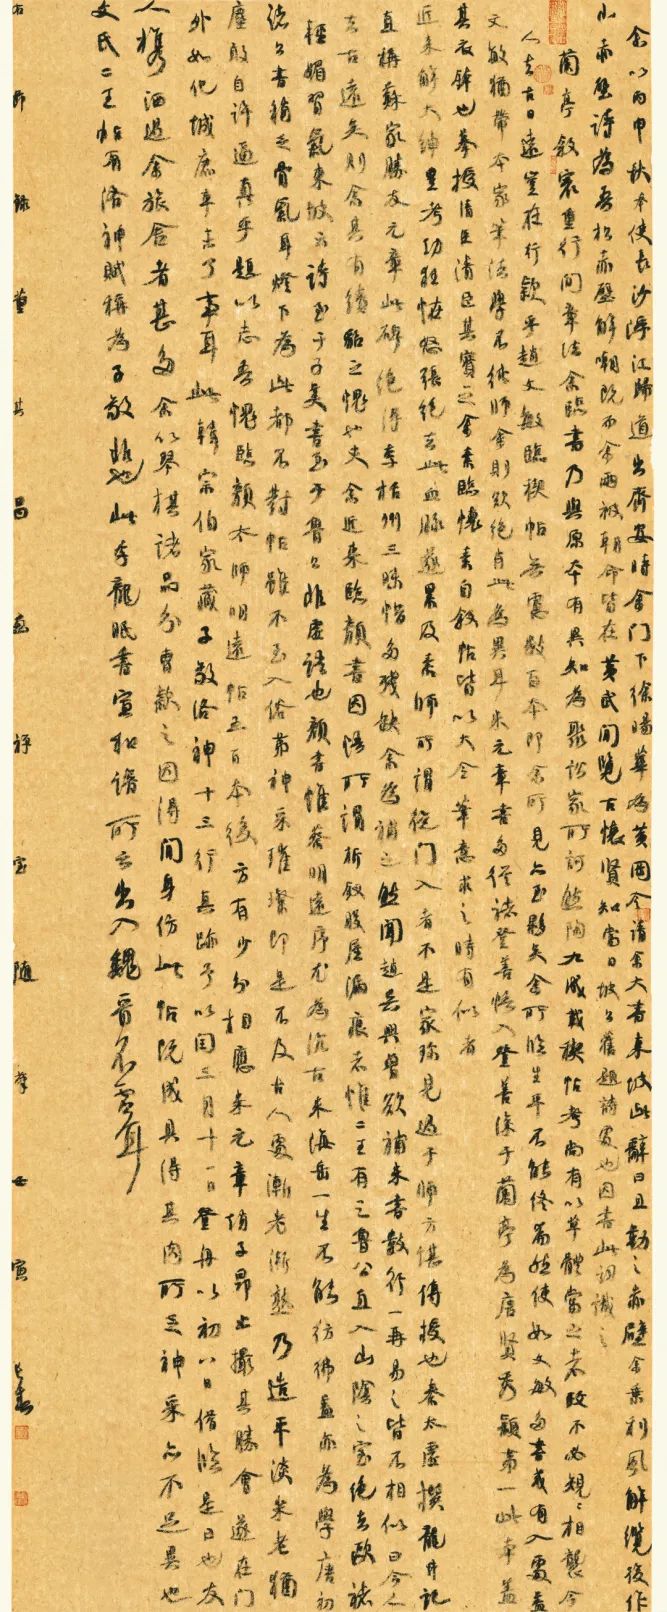 余以丙申秋奉使長沙浮江歸道出齊安時余門下徐暘華為黃岡令請余大書東坡此辭曰且勒之赤壁余乘利風解纜後作
小赤壁詩為吾松赤壁解嘲既而余兩被朝命皆在黃武間覽古懷賢知當日坡公舊題詩處也因書此詞識之
蘭亭敘最重行間章法余臨書乃與原本有異知為聚訟家所訶然陶九成載禊帖考尚有以草體當之者政不必規規相襲今
人去古日遠豈在行款乎趙文敏臨禊帖無慮數百本即余所見亦至夥矣余所臨生平不能終篇然使如文敏多書或有入處蓋
文敏猶帶本家筆法學不純師余則欲絕肖此為異耳米元章書多從褚登善悟入登善深于蘭亭為唐賢秀穎第一此本蓋
其衣鉢也摹授清臣清臣其寶之余素臨懷素自敘帖皆以大令筆意求之時有似者
近來解大紳豐考功狂怪怒張絕去此血脈遂累及素師所謂從門入者不是家珍見過于師方堪傳授也秦太虛撰龍井記
直稱蘇家勝友元章此碑絕得李栝州三昧惜多殘缺余為補之然聞趙吳興曾欲補米書數行一再易之皆不相似曰今人
去古遠矣則余其有續貂之愧也夫余近來臨顏書因悟所謂折釵股屋漏痕者惟二王有之魯公直入山陰之室絕去歐褚
輕媚習氣東坡云詩至于子美書至于魯公非虛語也顏書惟蔡明遠序尤為沉古米海岳一生不能彷彿蓋亦為學唐初
諸公書稍乏骨氣耳燈下為此都不對帖雖不至入俗第神采璀璨即是不及古人處漸老漸熟乃造平淡米老猶
塵敢自許逼真乎題以志吾愧臨顏太師明遠帖五百本後方有少分相應米元章趙子昂止撮其勝會遂在門
外如化城鹿車未了事耳此韓宗伯家藏子敬洛神十三行真跡予以閏三月十一日登舟以初八日借臨是日也友
人攜酒過余旅舍者甚多余以琴棋諸品分曹歡之因得閒身仿此帖既成具得其肉所乏神采亦不足異也
文氏二王帖有洛神賦稱為子敬非也此李龍眠書宣和譜所云出入魏晉不虛耳
右節錄董其昌畫禪室隨筆七寅